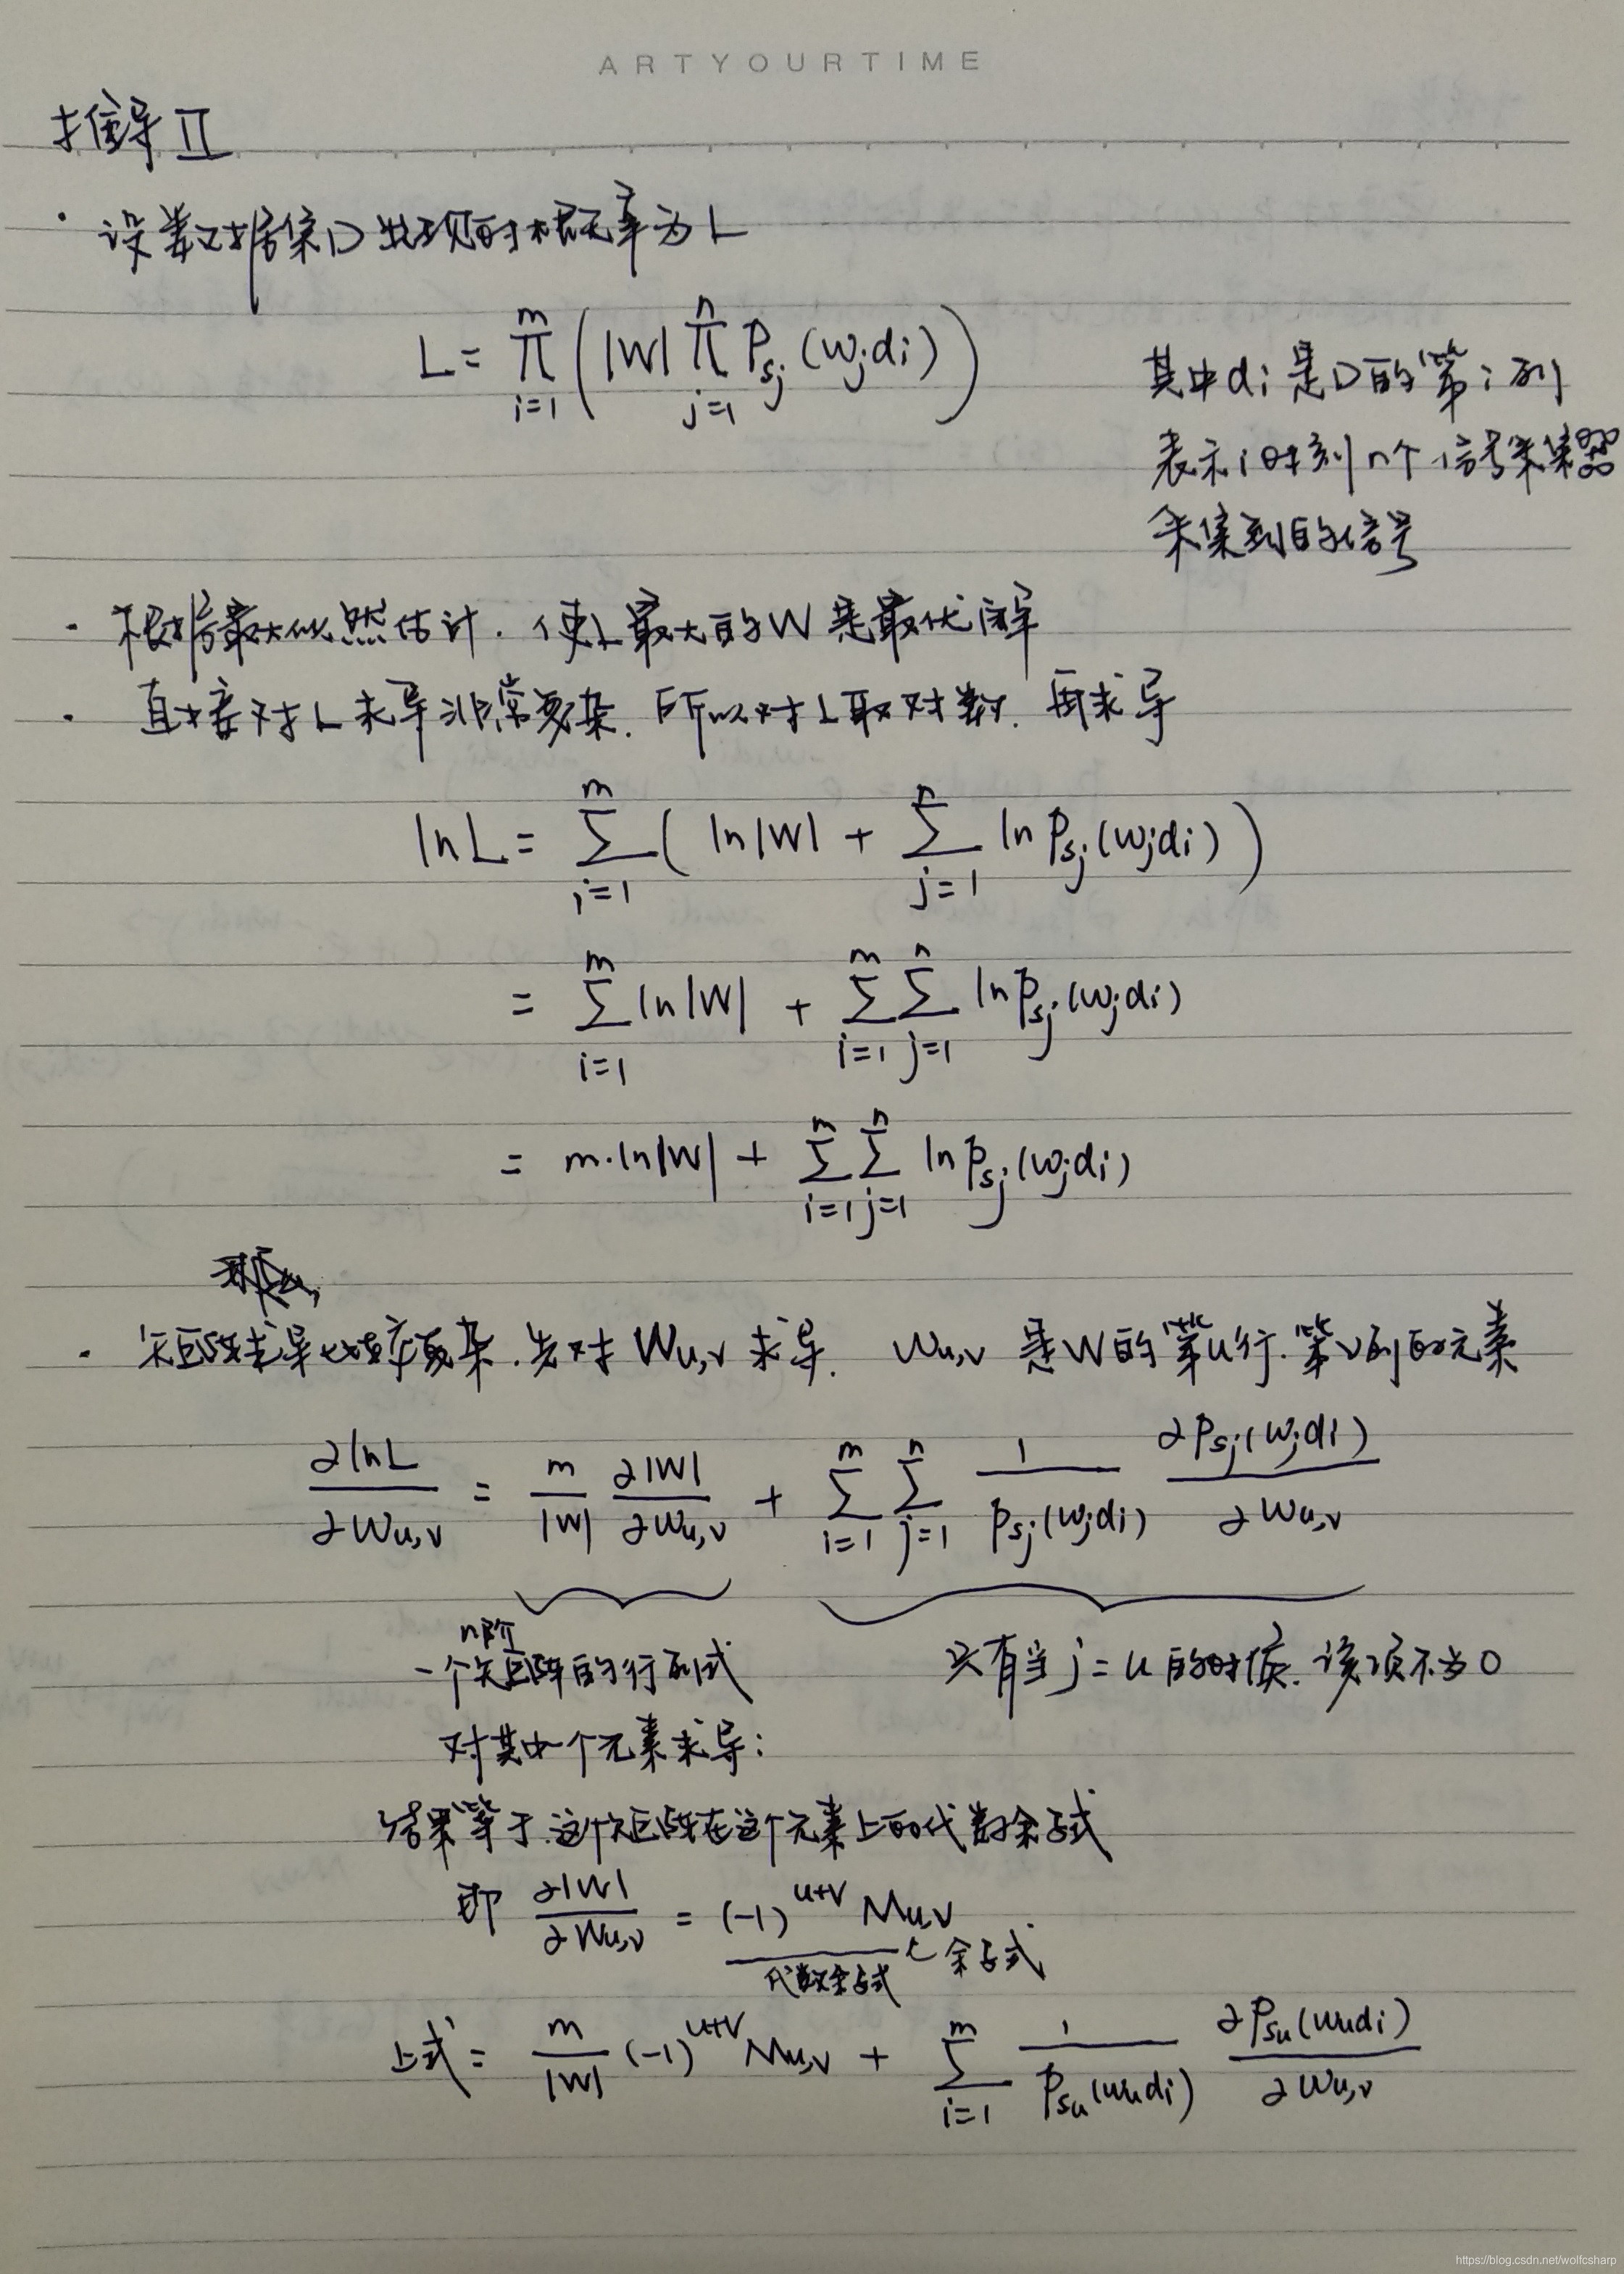 ARTYOURTIME
推导 II
· 设数据集D出现的概率为L
L = ∏_{i=1}^{m} ( |W| ∏_{j=1}^{n} P_{sj}(w_j d_i) )
其中di是D的第i列
表示i时刻n个信号采集器
采集到的信号
· 根据最大似然估计. 使L最大的W是最优解
· 直接对L求导非常复杂. 所以对L取对数. 再求导
lnL = ∑_{i=1}^{m} ( ln|W| + ∑_{j=1}^{n} ln P_{sj}(w_j d_i) )
= ∑_{i=1}^{m} ln|W| + ∑_{i=1}^{m} ∑_{j=1}^{n} ln P_{sj}(w_j d_i)
= m·ln|W| + ∑_{i=1}^{m} ∑_{j=1}^{n} ln P_{sj}(w_j d_i)
· 矩阵求导比较复杂. 先对 W_{u,v} 求导. W_{u,v} 是W的第u行. 第v列的元素
∂lnL/∂W_{u,v} = m/|W| ∂|W|/∂W_{u,v} + ∑_{i=1}^{m} ∑_{j=1}^{n} 1/P_{sj}(w_j d_i) ∂P_{sj}(w_j d_i)/∂W_{u,v}
一个n阶矩阵的行列式
只有当 j = u 的时候. 该项不为0
对其中一个元素求导:
结果等于这个矩阵在这个元素上的代数余子式
即 ∂|W|/∂W_{u,v} = (-1)^{u+v} M_{u,v}
余子式
代数余子式
上式 = m/|W| (-1)^{u+v} M_{u,v} + ∑_{i=1}^{m} 1/P_{su}(w_u d_i) ∂P_{su}(w_u d_i)/∂W_{u,v}
https://blog.csdn.net/wolfcsharp